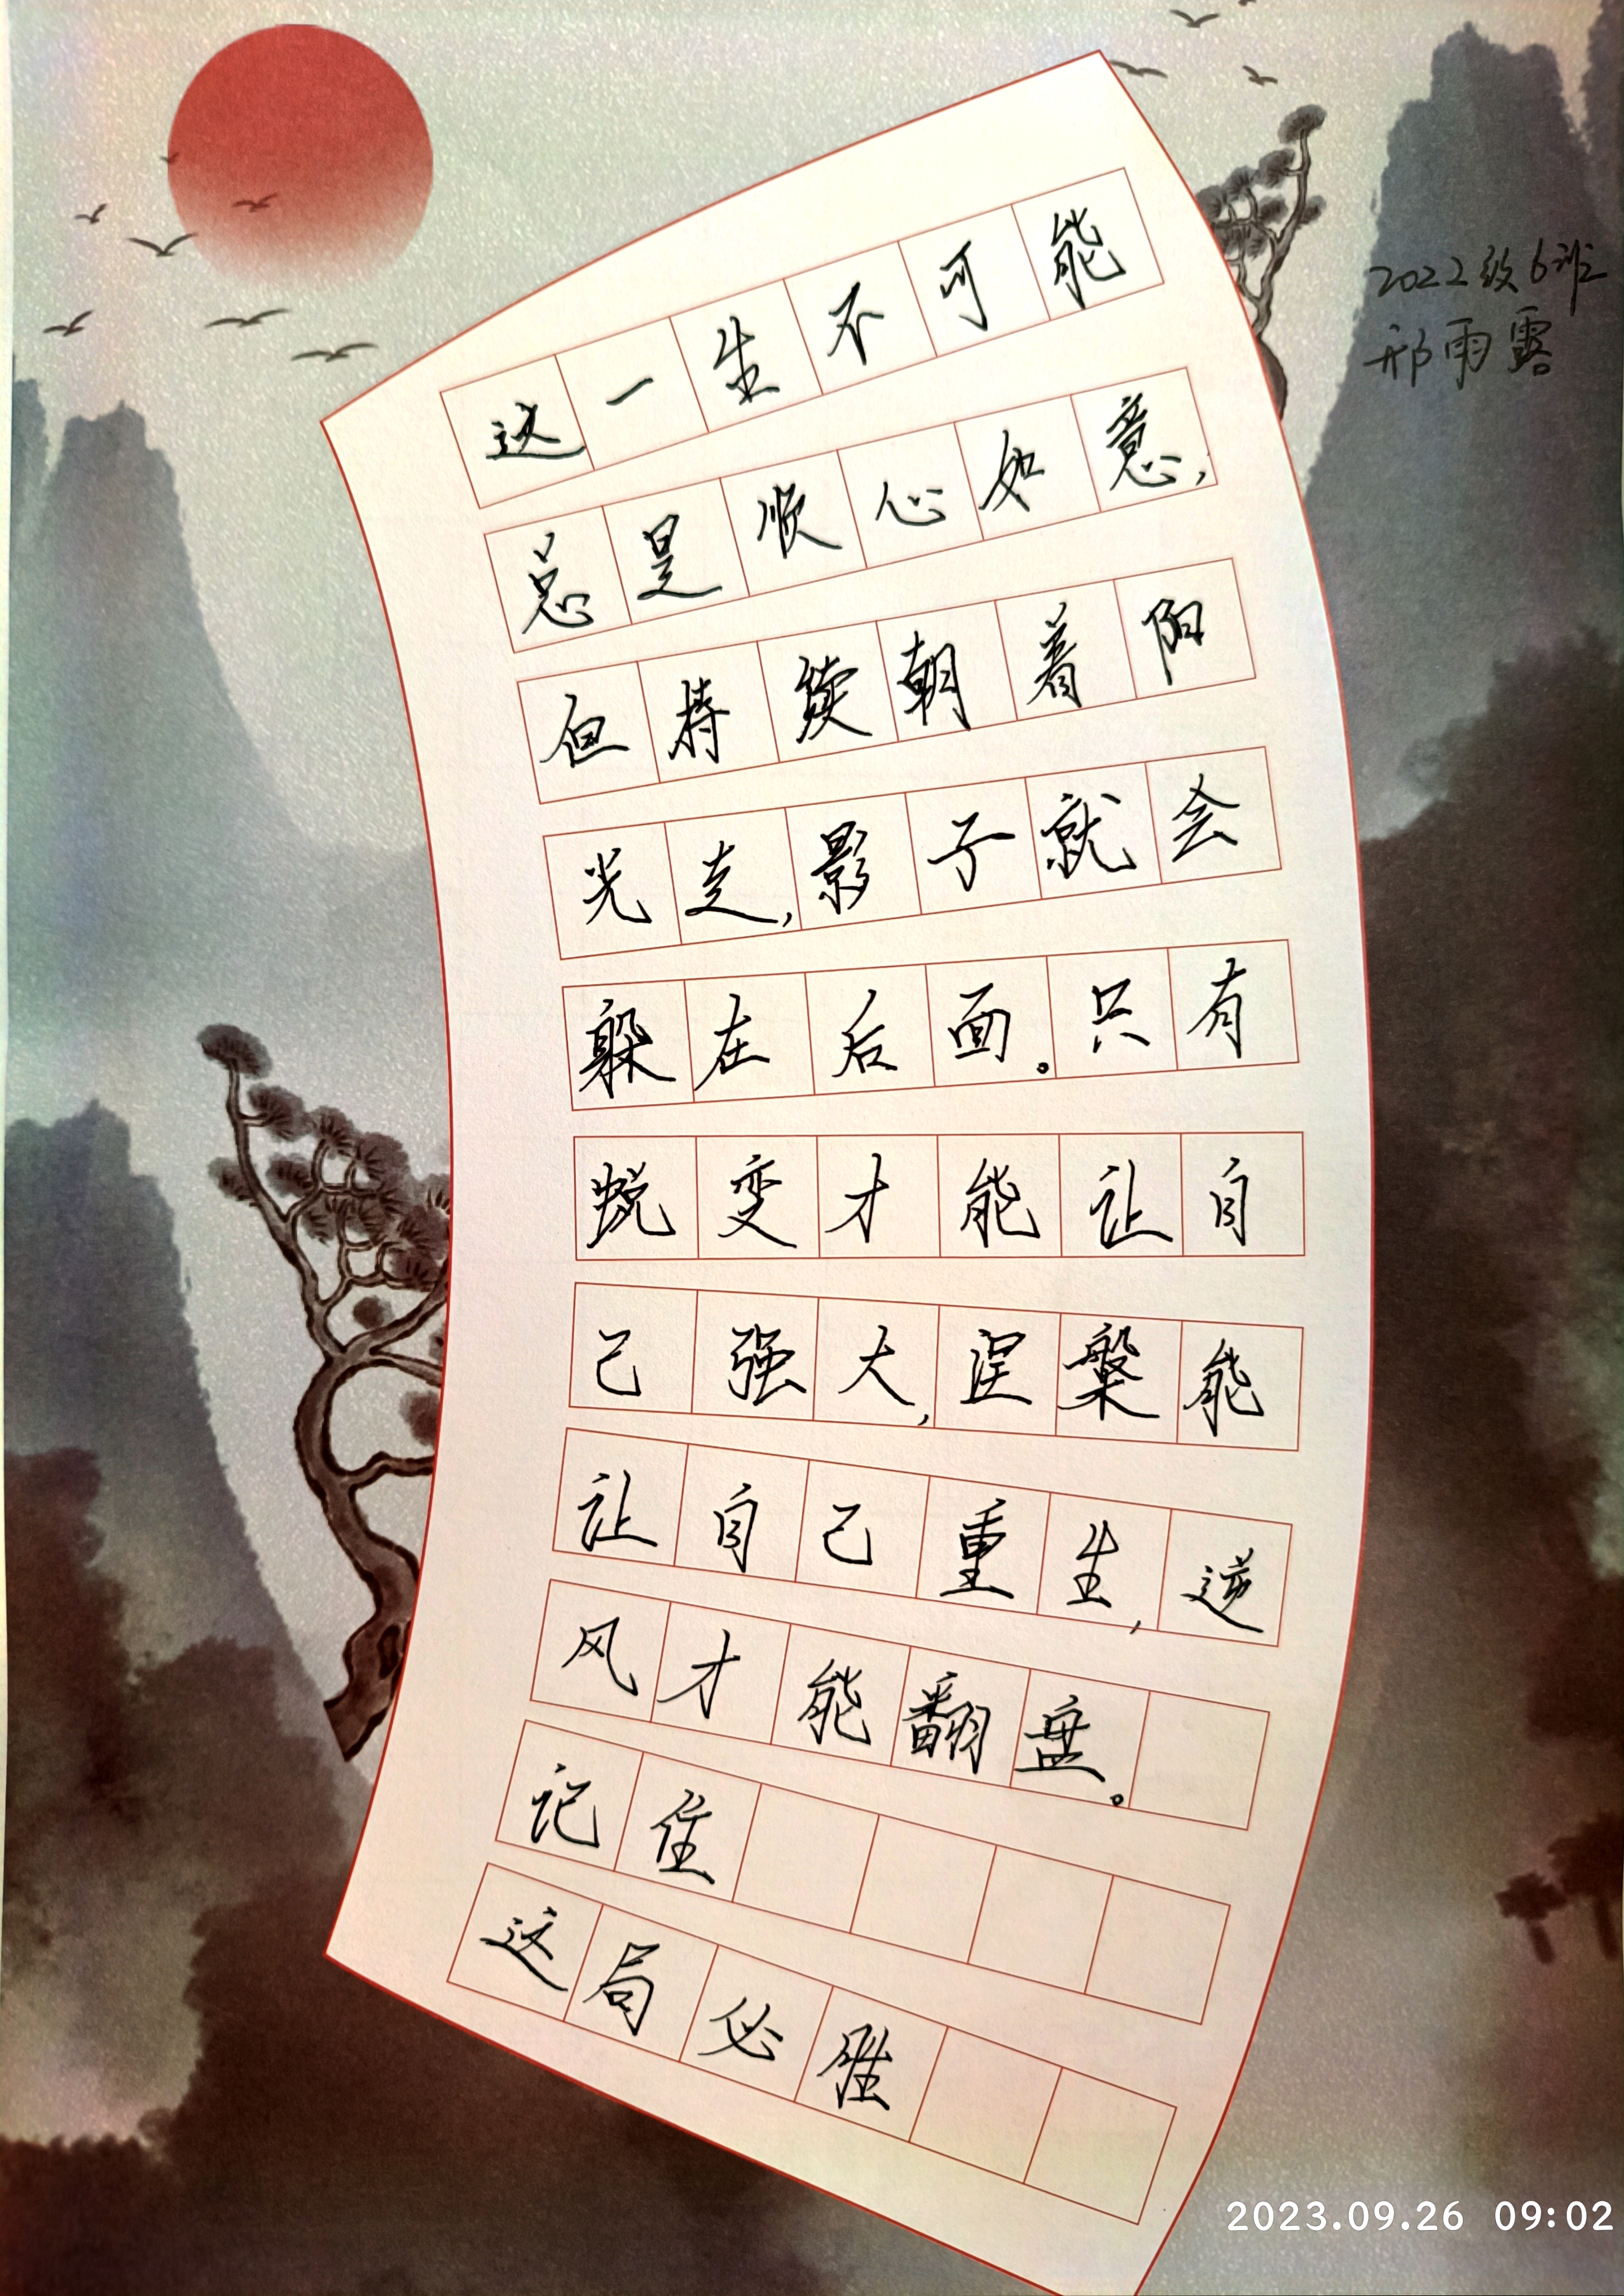 这一生不可能
总是顺心如意,
但持续朝着阳
光走,影子就会
躲在后面。只有
蜕变才能让自
己强大,涅槃能
让自己重生,逆
风才能翻盘。
记住
这局必胜
2022级6班
邢雨露
2023.09.26 09:02